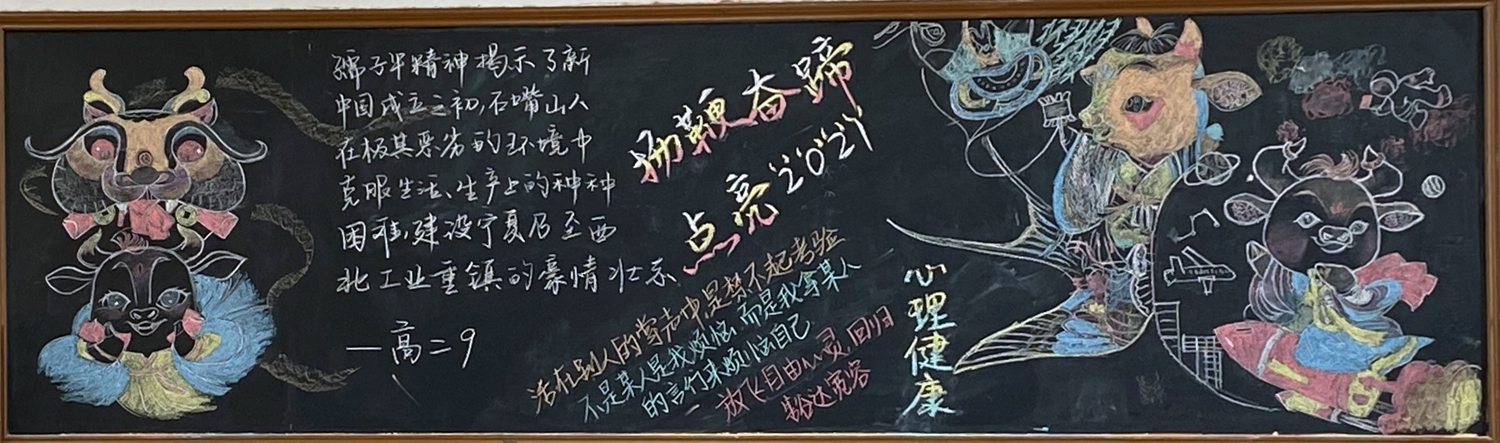 孺子牛精神揭示了新
中国成立之初,石嘴山人
在极其恶劣的环境中
克服生活、生产上的种种
困难,建设宁夏乃至西
北工业重镇的豪情壮志
—高二9
扬鞭奋蹄
点亮"2021"
活在别人的掌声中,是禁不起考验
不是某人是我烦恼,而是我拿某人
的言行来烦恼自己
放飞自由心灵,回归
豁达宽容
心理健康